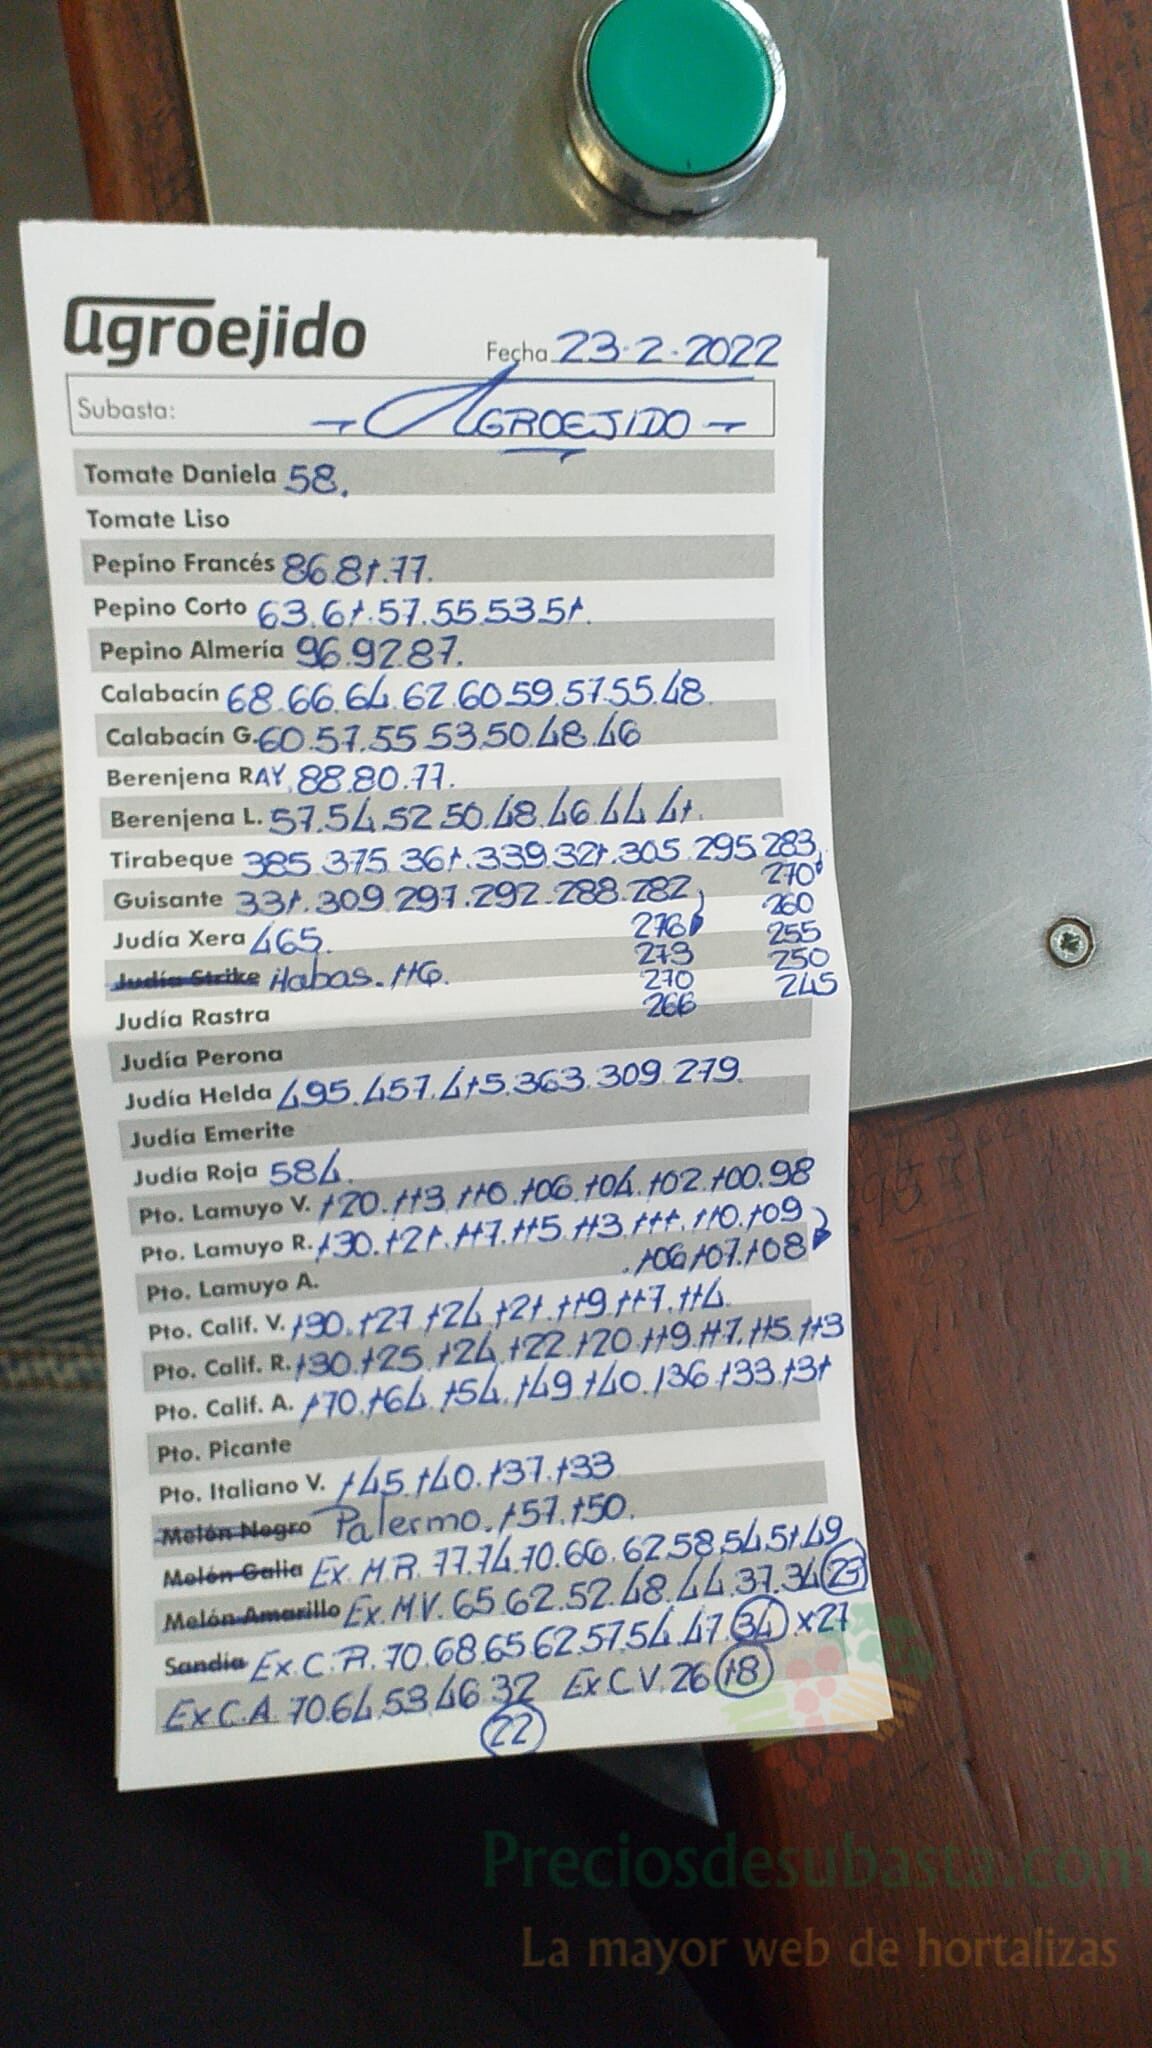 agroejido
Fecha 23-2-2022
Subasta: - AGROEJIDO -
Tomate Daniela 58.
Tomate Liso
Pepino Francés 86.81.77.
Pepino Corto 63.61.57.55.53.51.
Pepino Almería 96.92.87.
Calabacín 68.66.64.62.60.59.57.55.48.
Calabacín G. 60.57.55.53.50.48.46
Berenjena RAY 88.80.77.
Berenjena L. 57.54.52.50.48.46.44.41.
Tirabeque 385.375.361.339.321.305.295.283,
270
Guisante 331.309.297.292.288.282,
260
276
Judía Xera 465.
255
273
Judía Strike Habas. 116.
250
270
245
266
Judía Rastra
Judía Perona
Judía Helda 495.457.415.363.309.279.
Judía Emerite
Judía Roja 584.
Pto. Lamuyo V. 120.113.110.106.104.102.100.98
Pto. Lamuyo R. 130.121.117.115.113.111.110.109
.106.107.108
Pto. Lamuyo A.
Pto. Calif. V. 130.127.124.121.119.117.114.
Pto. Calif. R. 130.125.124.122.120.119.117.115.113
Pto. Calif. A. 170.164.154.149.140.136.133.131
Pto. Picante
Pto. Italiano V. 145.140.137.133
Melón Negro Palermo. 157.150.
Melón Galia Ex. M.R. 77.74.70.66.62.58.54.51.49
Melón Amarillo Ex. M.V. 65.62.52.48.44.37.34 23
Sandía Ex. C.R. 70.68.65.62.57.54.47.34 x27
Ex C.A. 70.64.53.46.32 Ex C.V. 26 18
22
Preciosdesubasta.com
La mayor web de hortalizas